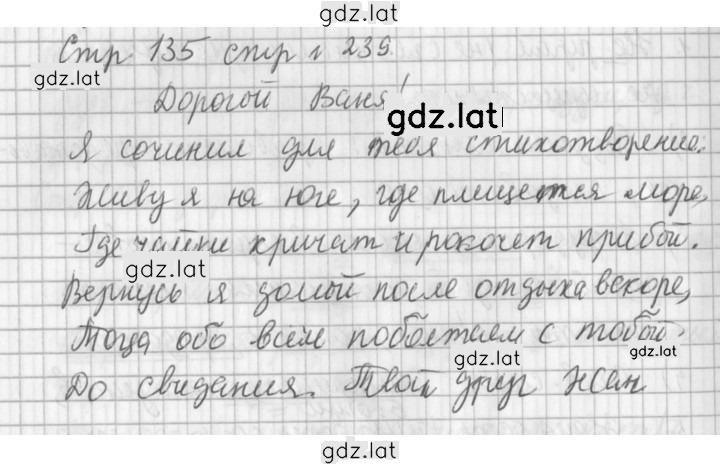 gdz.lat
Стр 135 стр № 239
gdz.lat
Дорогой Ваня!
gdz.lat
Я сочинил для тебя стихотворение.
Живу я на юге, где плещется море,
Где чайки кричат и рокочет прибой.
gdz.lat
Вернусь я домой после отдыха вскоре,
Тогда обо всём поболтаем с тобой.
gdz.lat
gdz.lat
До свидания. Твой друг Жан
gdz.lat